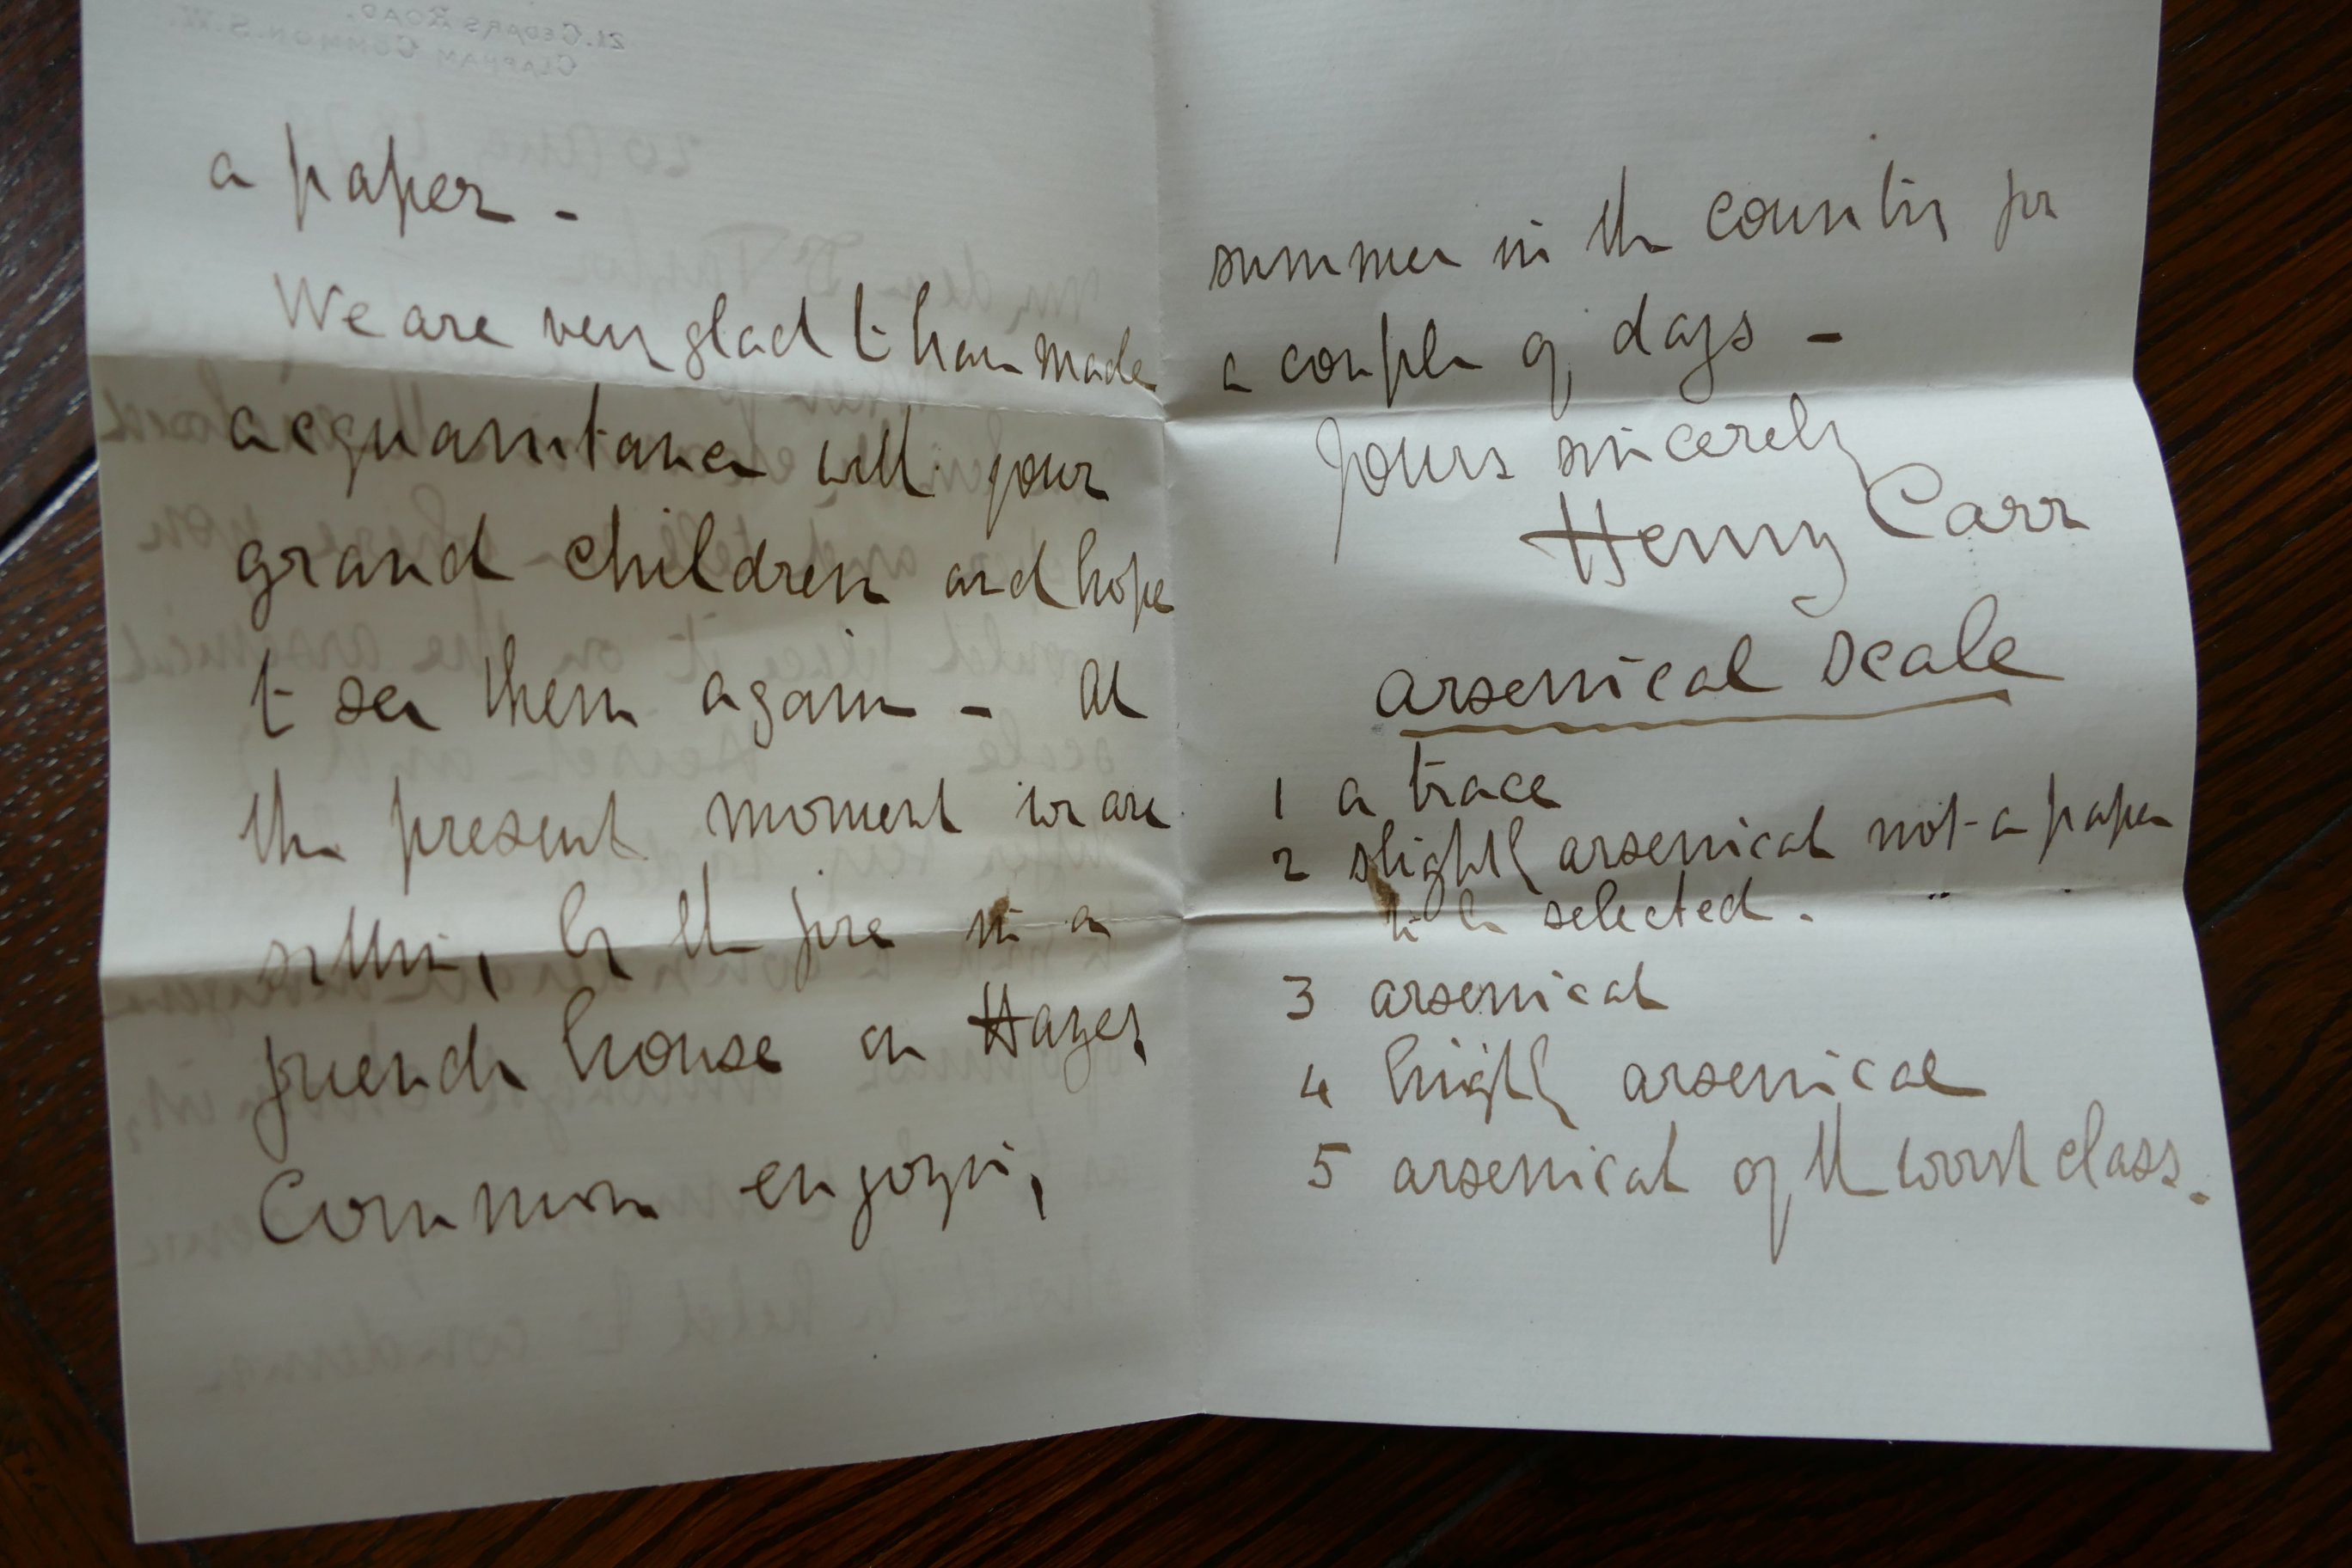 21. CEDARS ROAD,
CLAPHAM COMMON. S.W.
a paper -
We are very glad to have made
acquaintance with your
grand children and hope
to see them again - at
the present moment we are
sitting by the fire in a
friends house on Hayes
Common enjoying
summer in the country for
a couple of days -
Yours sincerely
Henry Carr
arsenical scale
1 a trace
2 slightly arsenical not a paper
to be selected.
3 arsenical
4 highly arsenical
5 arsenical of the worst class.